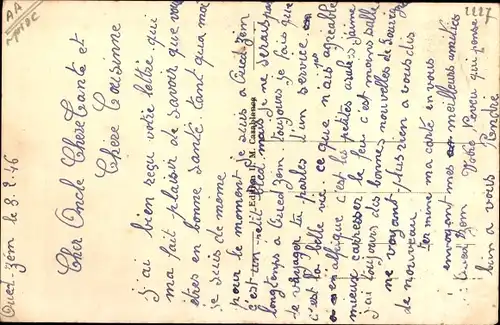 AA
Maroc
2227
Oued. Zem le 8. 2. 46
Cher Oncle Chere Tante et
Chere Cousinne
j'ai bien reçu votre lettre qui
ma fait plaisir de savoir que vous
etres en bonne santé tant qua moi
je suis de meme
pour le moment je suis a Oued Zem
c'est un petit bled mais je ne serais pas
longtemps a Oued Zem toujours je fais que
de voyager tu parles d'un service
c'est la belle vie ce que n'ais agreable
en afrique c'est les petites
mieux caresser le feu c'est moins salle
j'ai toujours des bonnes nouvelles de Souraz
ne voyant plus rien a vous dis
de nouveau
Ter mine ma carte en vous
envoyant mes meilleurs amities
Oued Zem Votre Neveu qui pense
bien a vous
Edition M. Casablanca